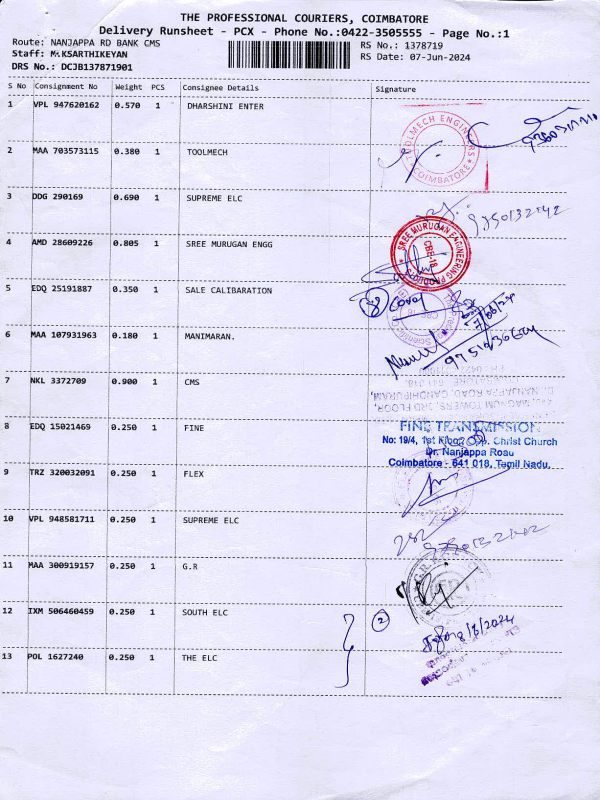 THE PROFESSIONAL COURIERS, COIMBATORE
Delivery Runsheet - PCX - Phone No.:0422-3505555 - Page No.:1
Route: NANJAPPA RD BANK CMS
Staff: M.KSARTHIKEYAN
DRS No.: DCJB137871901
RS No.: 1378719
RS Date: 07-Jun-2024
S No Consignment No Weight PCS Consignee Details Signature
1 VPL 947620162 0.570 1 DHARSHINI ENTER
2 MAA 703573115 0.380 1 TOOLMECH
TOOLMECH ENGINEERS
COIMBATORE
3 DDG 290169 0.690 1 SUPREME ELC
4 AMD 28609226 0.805 1 SREE MURUGAN ENGG
SREE MURUGAN ENGINEERING PRODUCTS
CBE-18
5 EDQ 25191887 0.350 1 SALE CALIBARATION
6 MAA 107931963 0.180 1 MANIMARAN.
7 NKL 3372709 0.900 1 CMS
MAGNUM TOWERS, 3RD FLOOR,
D. NANJAPPA ROAD, GANDHIPURAM,
8 EDQ 15021469 0.250 1 FINE
FINE TRANSMISSION
No: 19/4, 1st Floor, Opp. Christ Church
Dr. Nanjappa Road
Coimbatore - 641 018, Tamil Nadu.
9 TRZ 320032091 0.250 1 FLEX
10 VPL 948581711 0.250 1 SUPREME ELC
11 MAA 300919157 0.250 1 G.R
12 IXM 506460459 0.250 1 SOUTH ELC
2
8/6/2024
13 POL 1627240 0.250 1 THE ELC